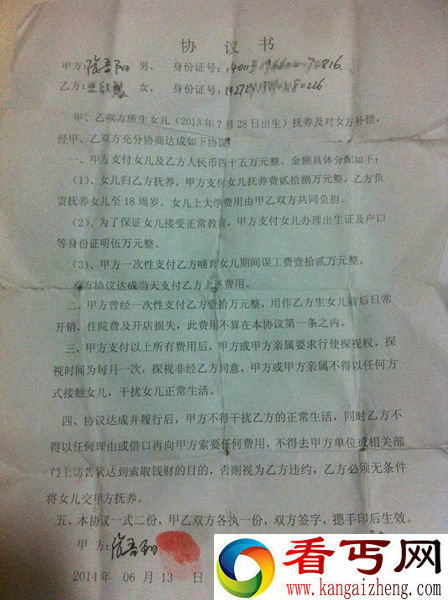 协 议 书
甲方: 男, 身份证号:
乙方: 女, 身份证号:
甲、乙双方所生女儿(2013年7月28日出生)抚养及对女方补偿,
经甲、乙双方充分协商达成如下协议:
一、甲方支付女儿及乙方人民币四十五万元整。金额具体分配如下:
(1)、女儿归乙方抚养,甲方支付女儿抚养费贰拾捌万元整,乙方负
责抚养女儿至18周岁。女儿上大学费用由甲乙双方共同负担。
(2)、为了保证女儿接受正常教育,甲方支付女儿办理出生证及户口
等身份证明伍万元整。
(3)、甲方一次性支付乙方哺育女儿期间误工费壹拾贰万元整。
方协议达成当天支付乙方上述费用。
二、甲方曾经一次性支付乙方壹拾万元整,用作乙方生女儿前后日常
开销、住院费及开店损失,此费用不算在本协议第一条之内。
三、甲方支付以上所有费用后,甲方或甲方亲属要求行使探视权,探
视时间为每月一次,探视非经乙方同意,甲方或甲方亲属不得以任何方
式接触女儿,干扰女儿正常生活。
四、协议达成并履行后,甲方不得干扰乙方的正常生活,同时乙方不
得以任何理由或借口再向甲方索要任何费用,不得去甲方单位或相关部
门上访告状达到索取钱财的目的,否则视为乙方违约,乙方必须无条件
将女儿交甲方抚养。
五、本协议一式二份,甲乙双方各执一份,双方签字,摁手印后生效。
甲 方:
2014年 06月13日
看丐网
www.kangaizheng.com